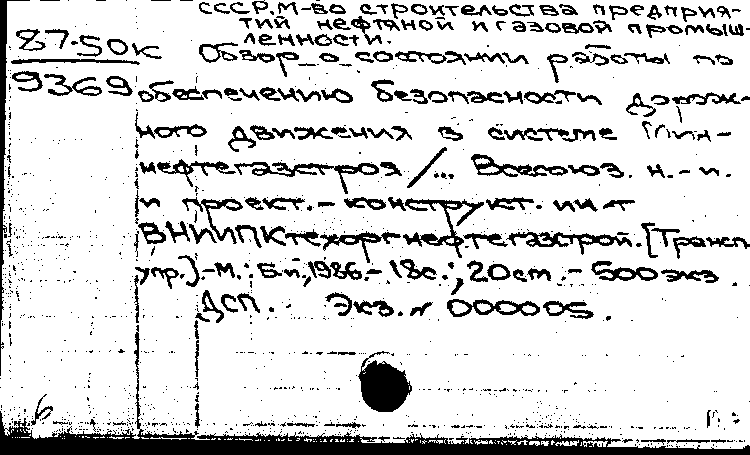 СССР. М-во строительства предприя-
тий нефтяной и газовой промыш-
ленности.
87-50к Обзор о состоянии работы по
9369 обеспечению безопасности дорож-
ного движения в системе Мин-
нефтегазстроя /... Всесоюз. н.-и.
и проект.-конструкт. ин-т
ВНИИПКтехоргнефтегазстрой. [Трансп.
упр.].-М.: Б.и., 1986.- 18с.; 20см.- 500 экз.
ДСП. Экз. № 000005.
б